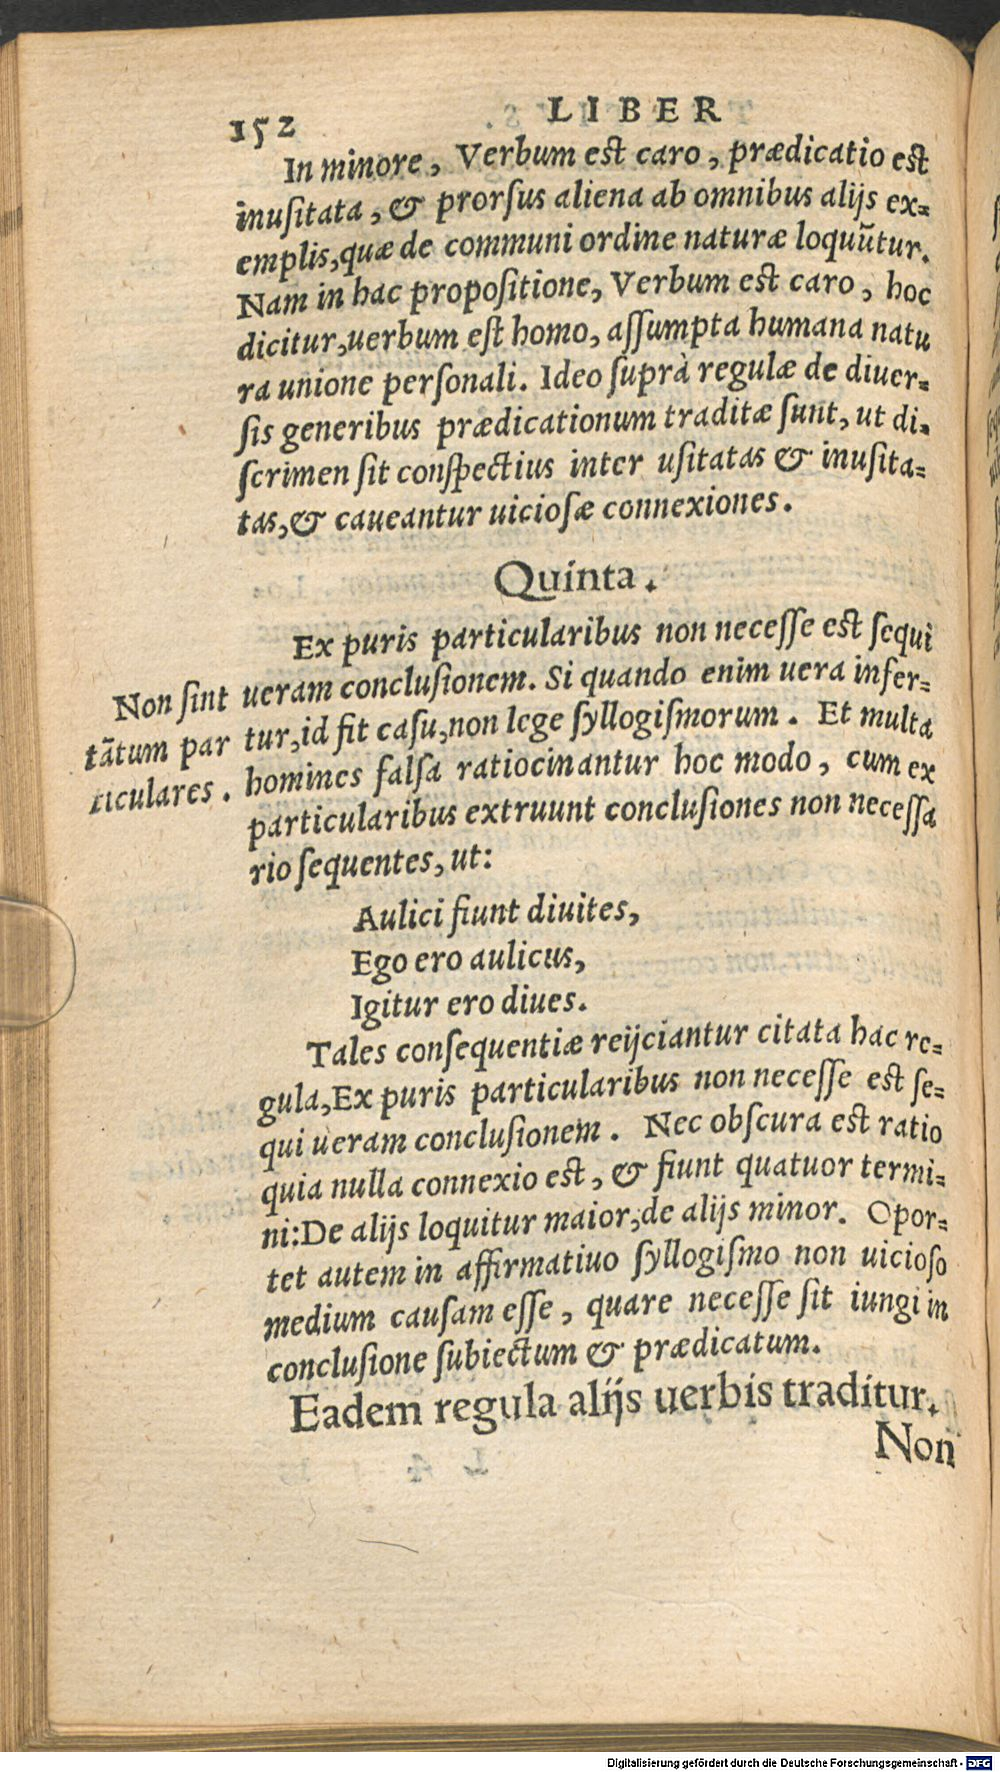 152 LIBER
In minore, Verbum est caro, prædicatio est
inusitata, & prorsus aliena ab omnibus alijs ex=
emplis, quæ de communi ordine naturæ loquũtur.
Nam in hac propositione, Verbum est caro, hoc
dicitur, uerbum est homo, assumpta humana natu
ra unione personali. Ideo suprà regulæ de diuer=
sis generibus prædicationum traditæ sunt, ut di=
scrimen sit conspectius inter usitatas & inusita=
tas, & caueantur uiciosæ connexiones.
Quinta.
Ex puris particularibus non necesse est sequi
ueram conclusionem. Si quando enim uera infer=
tur, id fit casu, non lege syllogismorum. Et multa
homines falsa ratiocinantur hoc modo, cum ex
particularibus extruunt conclusiones non necessa
rio sequentes, ut:
Non sint
tãtum par
ticulares.
Aulici fiunt diuites,
Ego ero aulicus,
Igitur ero diues.
Tales consequentiæ reijciantur citata hac re=
gula, Ex puris particularibus non necesse est se=
qui ueram conclusionem. Nec obscura est ratio
quia nulla connexio est, & fiunt quatuor termi=
ni: De alijs loquitur maior, de alijs minor. Opor=
tet autem in affirmatiuo syllogismo non uicioso
medium causam esse, quare necesse sit iungi in
conclusione subiectum & prædicatum.
Eadem regula alijs uerbis traditur.
Non
Digitalisierung gefördert durch die Deutsche Forschungsgemeinschaft - DFG